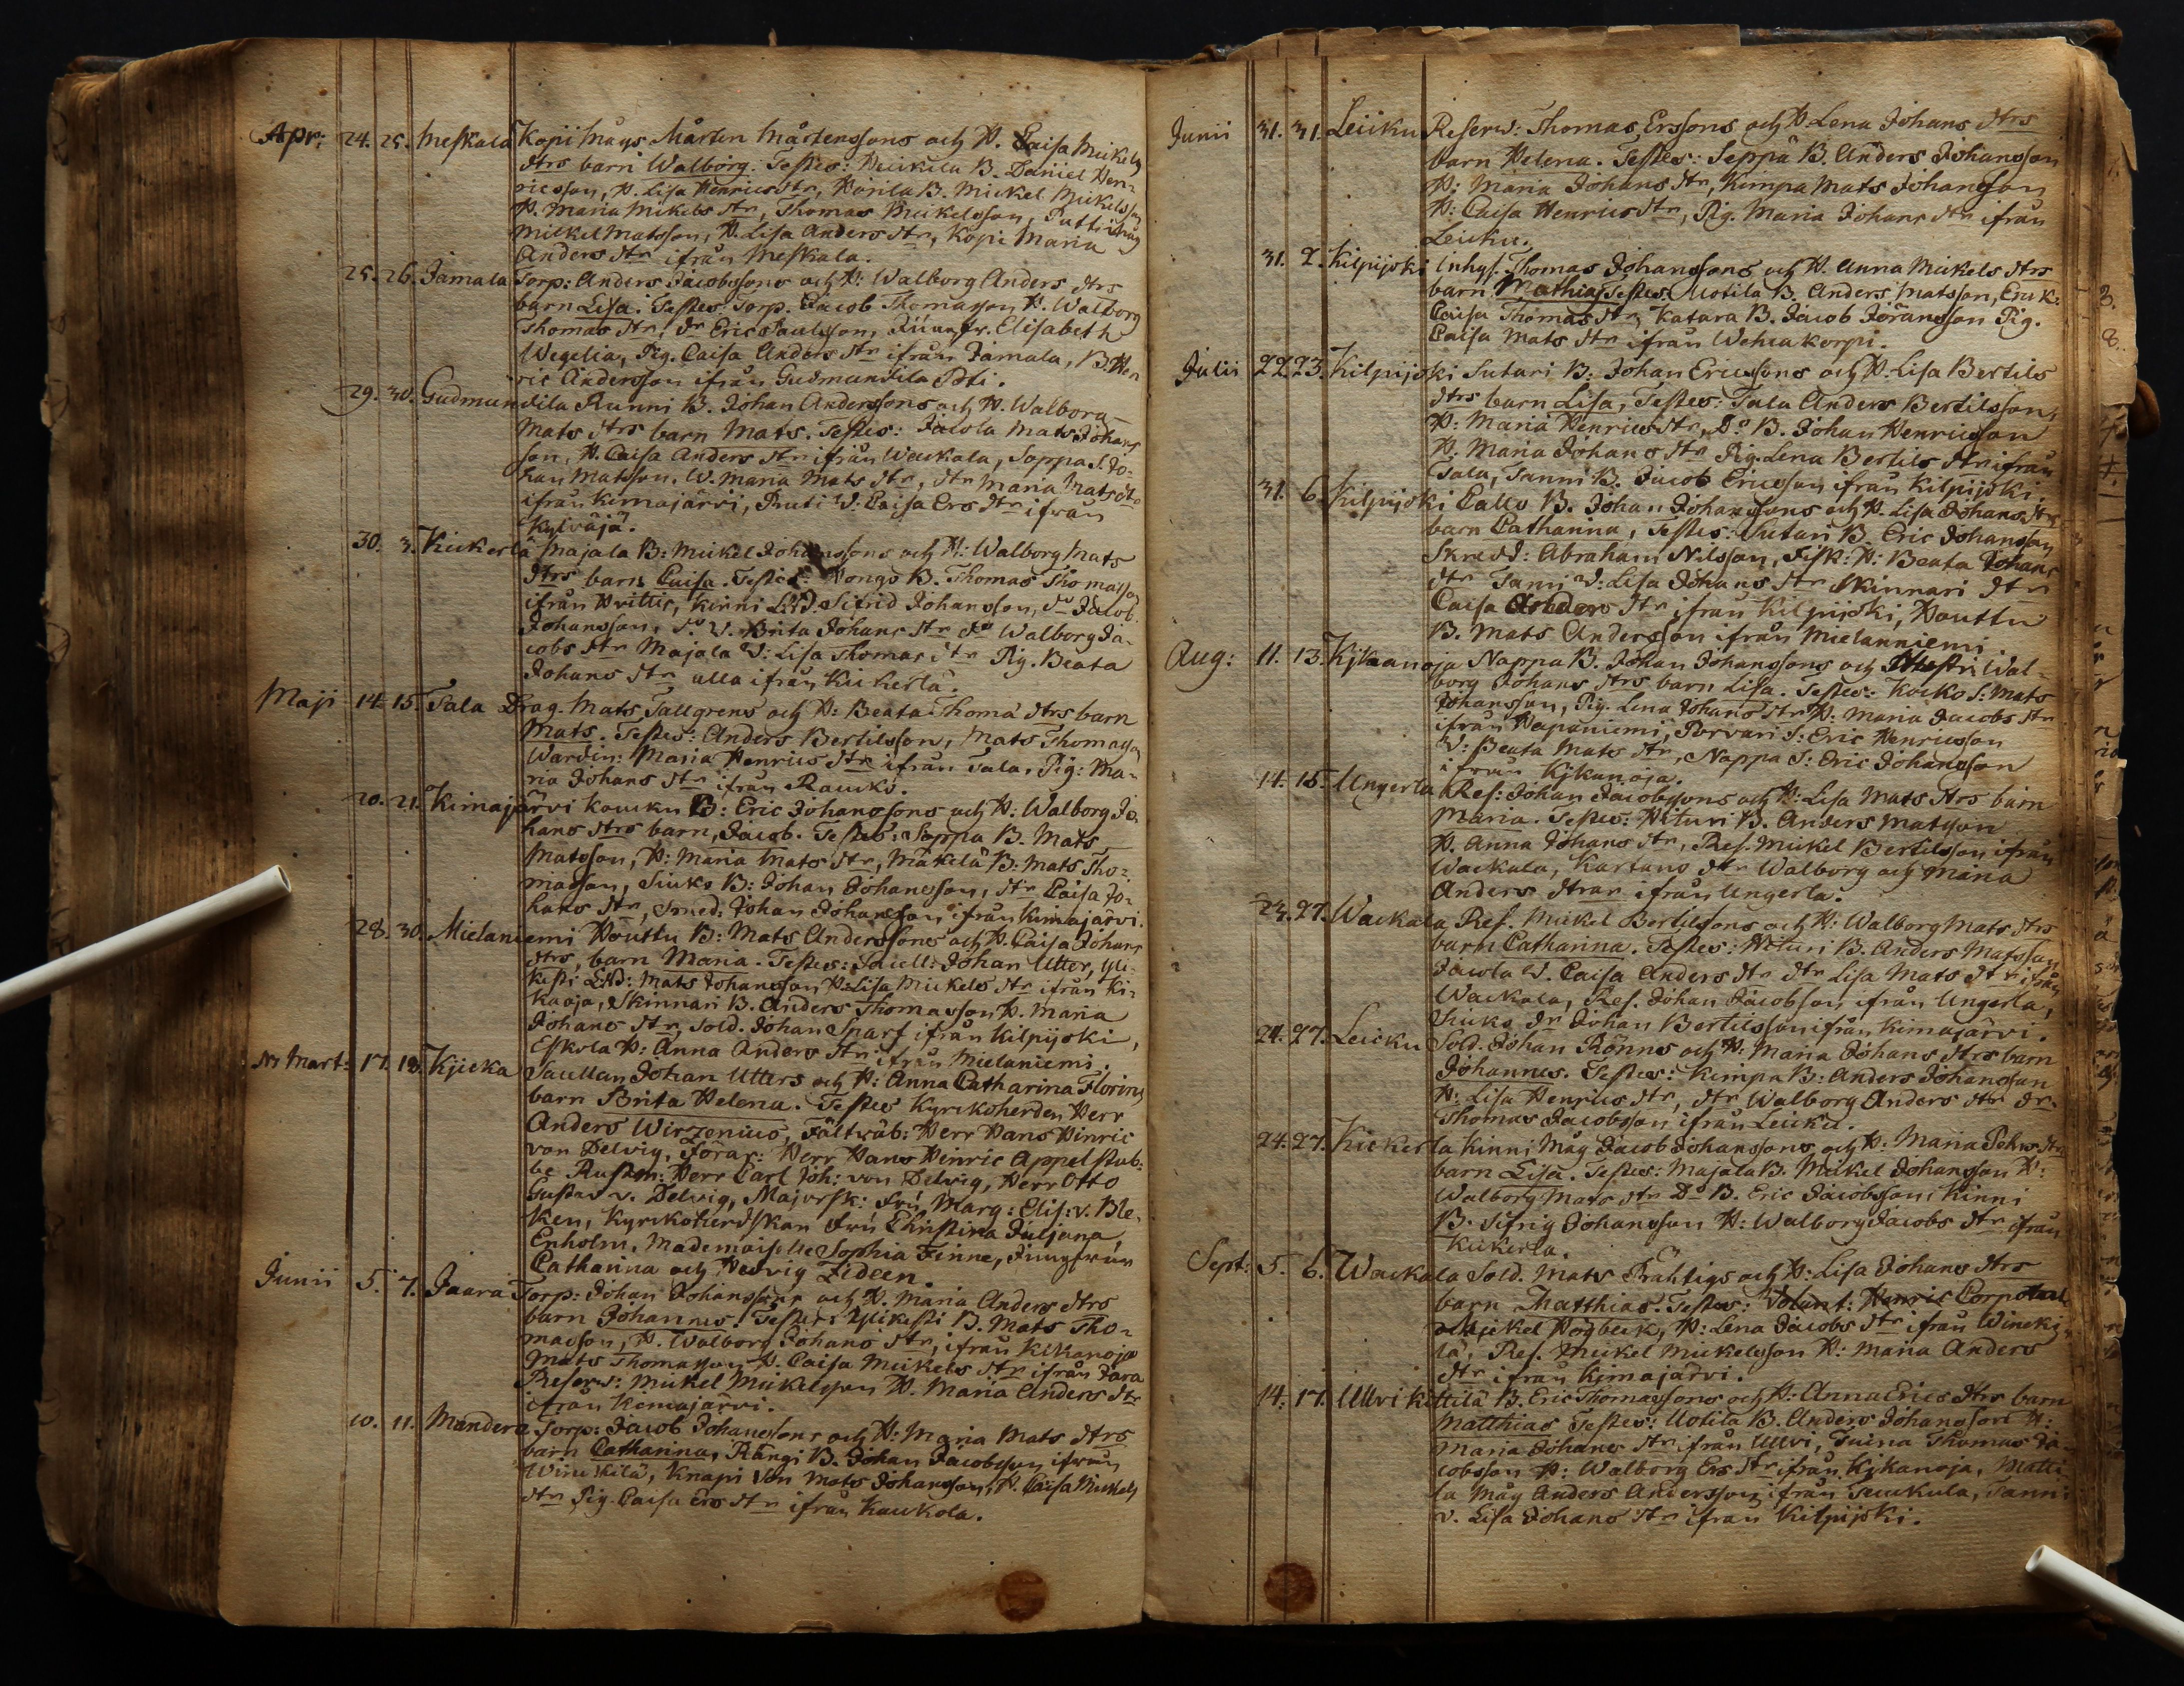 Apr: 24. 25. Meskala Kopi mågs Mårten Mårtenssons och H. Caisa Mickels
dtrs barn Walborg. Testes: Heickila B. Daniel Hen-
ricsson, H. Lisa Henrics dtr, Hörila B. Mickel Mickelsson
H. Maria Mikels dtr, Thomas Mickelsson, Putti måg
Mickel Matsson, H. Lisa Anders dtr, Kopi Maria
Anders dtr ifrån Meskala.
25. 26. Jamala Torp: Anders Jacobssons och H: Walborg Anders dtrs
barn Lisa. Testes Torp. Jacob Thomasson H. Walborg
Thomas dtr, dr Eric Paulsson, Jungfr. Elisabeth
Wegelia, Pig. Caisa Anders dtr ifrån Jamala, B. Hen
ric Andersson ifrån Gudmundila
29. 30. Gudmundila Runni B. Johan Anderssons och H. Walborg
Mats dtrs barn Mats. Testes: Jacola Mats Johans
son, H. Caisa Anders dtr ifrån Wackala, Soppa S. Jo-
han Matsson. W. Maria Mats dtr, dtr Maria Mats dtr
ifrån Kimajärvi, Ruti W: Caisa Ers dtr ifrån
Kylväjä.
30. 3. Kickerlä Majala B: Mickel Johanssons och H: Walborg Mats
dtrs barn Caisa. Testes: Hongo B. Thomas Thomasson
ifrån Hvittis, Kinni Sifrid Johansson, do Jacob
Johansson, do W. Brita Johans dtr do Walborg Ja-
cobs dtr Majala W: Lisa Thomas dtr Pig. Beata
Johans dtr alla ifrån Kickerlä.
Maji 14. 15. Tala Drag. Mats Tallgrens och H: Beata Thoma dtrs barn
Mats. Testes: Anders Bertilsson, Mats Thomasson
Wardin: Maria Henrics dtr ifrån Tala, Pig: Ma-
ria Johans dtr ifrån Raucko.
20. 21. Kimajärvi Koucku B: Eric Johanssons och H: Walborg Jo-
hans dtrs barn, Jacob. Testes: Soppa B. Mats
Matsson, H: Maria Mats dtr, Mäkelä B: Mats Tho-
masson, Siuko B: Johan Johansson, dtr Caisa Jo-
hans dtr, Smed: Johan Johansson ifrån Kimajärvi.
28. 30. Mielaniemi Houttu B: Mats Anderssons och H. Caisa Johans
dtrs, barn Maria. Testes: Johan Utter, Yli-
kesti Mats Johansson H: Lisa Mickels dtr ifrån Ki-
kaoja, Skinnari B. Anders Thomasson H. Maria
Johans dtr, Sold. Johan Snarf ifrån Kilpijoki,
Eskola H: Anna Anders dtr ifrån Mielaniemi.
Mart: 17. 18. Kjicka Johan Utters och H: Anna Catharina Florins
barn Brita Helena. Testes Kyrckoherden Herr
Anders Wirzenius, Fältwäb: Herr Hans Hinric
von Delvig, Förar: Herr Hans Hinric Appelstub-
be Rustm: Herr Carl Joh: von Delvig, Herr Otto
Gustav v. Delvig, Majorsk: Fru Marg: Elis: v. Ble-
ken, Kyrckoherdskan Fru Christina Juljana
Enholm, Mademoiselle Sophia Finne, Jungfrun
Catharina och Hedvig Zideen.
Junii 5. 7. Jaara Torp: Johan Johanssons och H. Maria Anders dtrs
barn Johannes. Testes: Ylikesti B. Mats Tho-
masson, H. Walborg Johans dtr, ifrån Kikanoja
Mats Thomasson H. Caisa Mickels dtr ifrån Jara
Reserv: Mickel Mickelsson H. Maria Anders dtr
ifrån Kimajärvi.
10. 11. Mandera Torp: Jacob Johanssons och H: Maria Mats dtrs
barn Catharina, Rängi B. Johan Jacobsson ifrån
Winickilä, Knapi Mats Johansson, H. Caisa Mickels
dtr Pig. Caisa Ers dtr ifrån Kauckola.
Junii 31. 31. Leicku Reserv: Thomas Erssons och H Lena Johans dtrs
barn Helena. Testes: Seppä B. Anders Johansson
H: Maria Johans dtr, Kimpa Mats Johansson
H: Caisa Henrics dtr, Pig. Maria Johans dtr ifrån
Leicku.
31. 2. Kilpijoki Inhys. Thomas Johanssons och H. Anna Mickels dtrs
barn Mathias Testes. Uotila B. Anders Matsson, Enk:
Caisa Thomas dtr, Katara B. Jacob Göransson Pig.
Caisa Mats dtr ifrån Wehukorpi.
Julii 22. 23. Kilpijoki Sutari B: Johan Ericssons och H. Lisa Bertils
dtrs barn Lisa, Testes: Tala Anders Bertilsson,
H: Maria Henrics dtr, Do B. Johan Henricsson
H. Maria Johans dtr Pig. Lena Bertils dtr ifrån
Tala, Tanni B. Jacob Ericsson ifrån Kilpijoki.
31. 6. Kilpijoki Callo B. Johan Johanssons och H. Lisa Johans dtrs
barn Catharina, Testes: Sutari B. Eric Johansson
Skredd: Abraham Nilsson, Fisk: H: Beata Johans
dtr Tanni W: Lisa Johans dtr Skinnari dtr
Caisa Anders dtr ifrån Kilpijoki, Houttu
B. Mats Andersson ifrån Mielanniemi.
Aug: 11. 13. Kjkanoja Nappa B. Johan Johanssons och Hustru Wal-
borg Johans dtrs barn Lisa. Testes: Kocko S: Mats
Johansson, Pig. Lena Johans dtr H: Maria Jacobs dtr
ifrån Hapaniemi, Porvari S: Eric Henricsson
W: Beata Mats dtr, Nappa S: Eric Johansson
ifrån Kjkanoja.
14. 15. Ungerla Res: Johan Jacobssons och H: Lisa Mats dtrs barn
Maria. Testes: Hituri B. Anders Matsson
H. Anna Johans dtr, Res. Mickel Bertilsson ifrån
Wackala, Kartano dtr Walborg och Maria
Anders dtrar ifrån Ungerla.
23. 27. Wackala Res. Mickel Bertilssons och H: Walborg Mats dtrs
barn Catharina. Testes: Hituri B. Anders Matsson
Jacola W. Caisa Anders dtr dtr Lisa Mats dtr ifrån
Wackala, Res. Johan Jacobsson ifrån Ungerla,
Siuko dr Johan Bertilsson ifrån Kimajärvi.
24. 27. Leicku Sold. Johan Rönns och H: Maria Johans dtrs barn
Johannes. Testes: Kimpa B: Anders Johansson
H: Lisa Henrics dtr, dtr Walborg Anders dtr dr
Thomas Jacobsson ifrån Leicku.
24. 27. Kickerla Kinni Måg Jacob Johanssons och H: Maria Pehrs dtrs
barn Lisa. Testes: Majala B. Mickel Johansson H:
Walborg Mats dtr Do B. Eric Jacobsson, Kinni
B. Sifrig Johansson H: Walborg Jacobs dtr ifrån
Kickerla.
Sept: 5. 6. Wackala Sold. Mats Prähtigs och H: Lisa Johans dtrs
barn Matthias. Testes: Volunt: Henric Corporal
Michel Högbeck, H: Lena Jacobs dtr ifrån Winicki-
lä, Res. Mickel Mickelsson H: Maria Anders
dtr ifrån Kimajärvi.
14. 17. Ullvi Kittilä B. Eric Thomassons och H: Anna Erics dtrs barn
Matthias Testes: Uotila B. Anders Johansson H:
Maria Johans dtr ifrån Ullvi, Juina Thomas Ja-
cobsson H: Walborg Ers dtr ifrån Kjkanoja, Matti-
la Måg Anders Andersson ifrån Tauckula, Tanni
v. Lisa Johans dtr ifrån Kilpijoki.